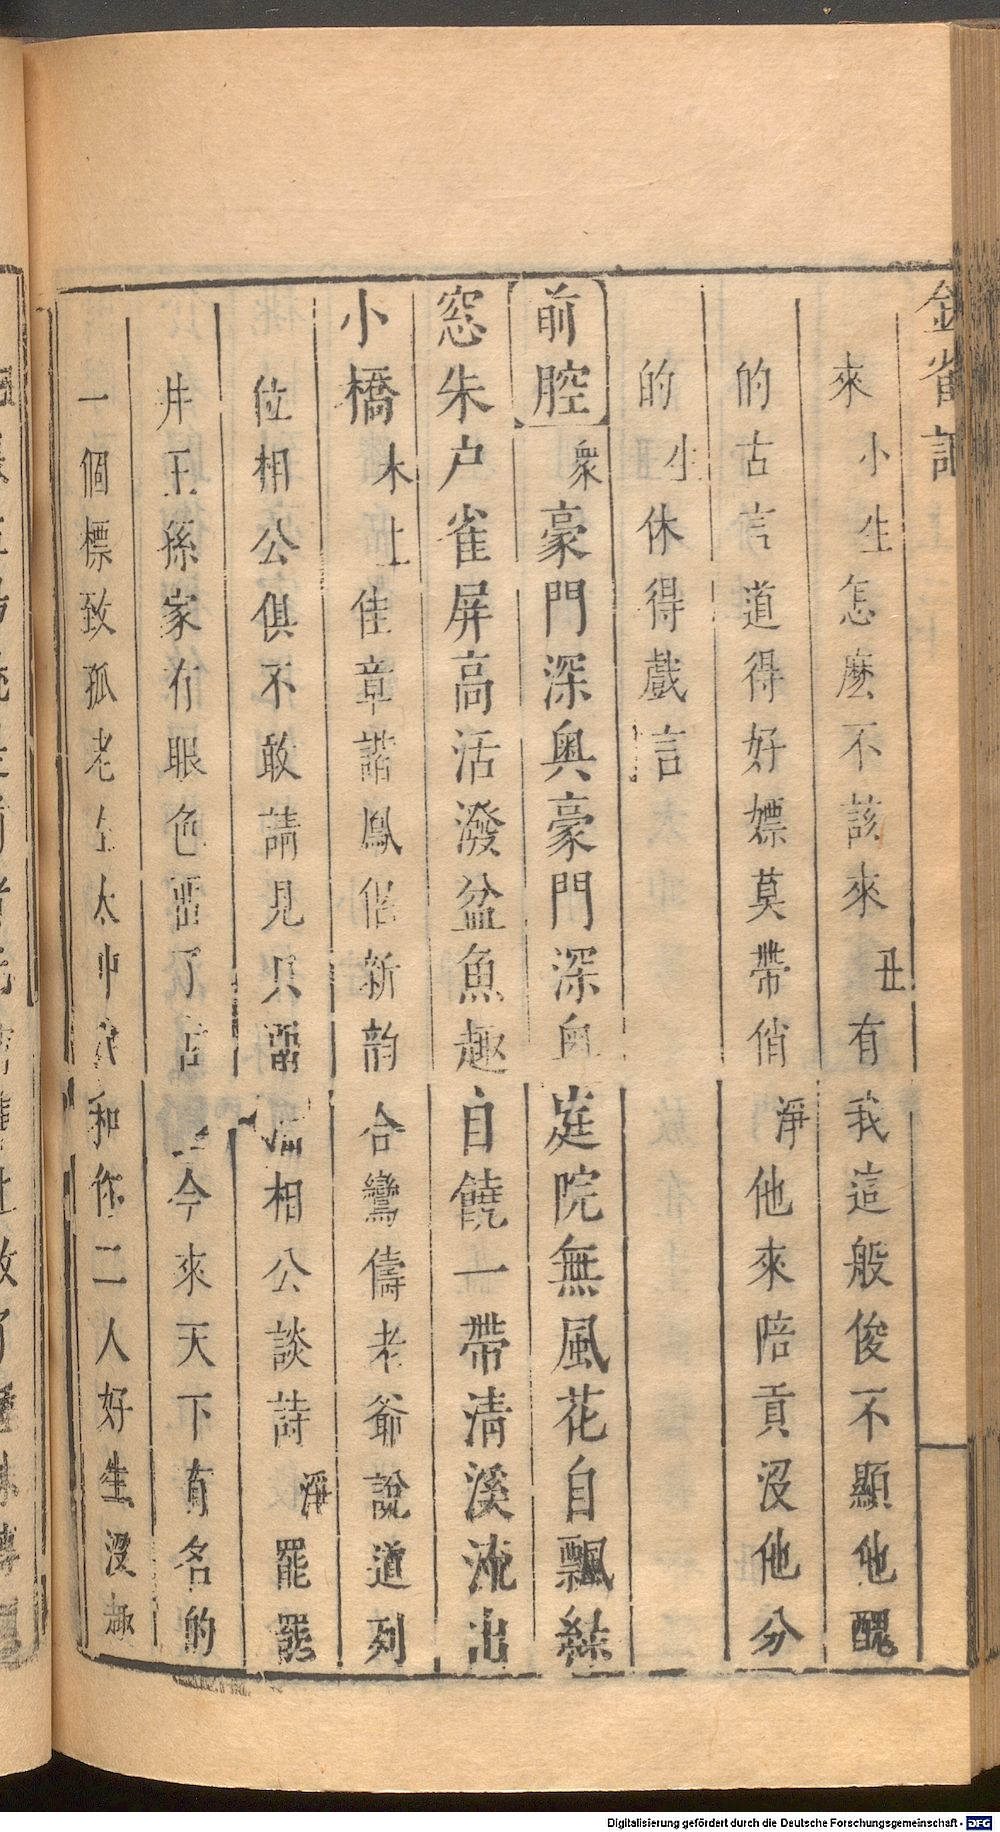 金雀記
來小生怎麽不該來丑有我這般俊不顯他醜
的古言道得好嫖莫帶俏淨他來陪貢沒他分
的小生休得戲言
前腔衆豪門深奥豪門深奥庭院無風花自飄絲
窓朱户雀屏高活潑盆魚趣自饒一帶清溪流出
小橋末上佳章諧鳳侶新韵合鸞儔老爺說道列
位相公俱不敢請見只留相公談詩淨罷罷
井王孫家有眼色留了今來天下有名的
一個標致孤老左太冲和你二人好生沒趣
Digitalisierung gefördert durch die Deutsche Forschungsgemeinschaft - DFG